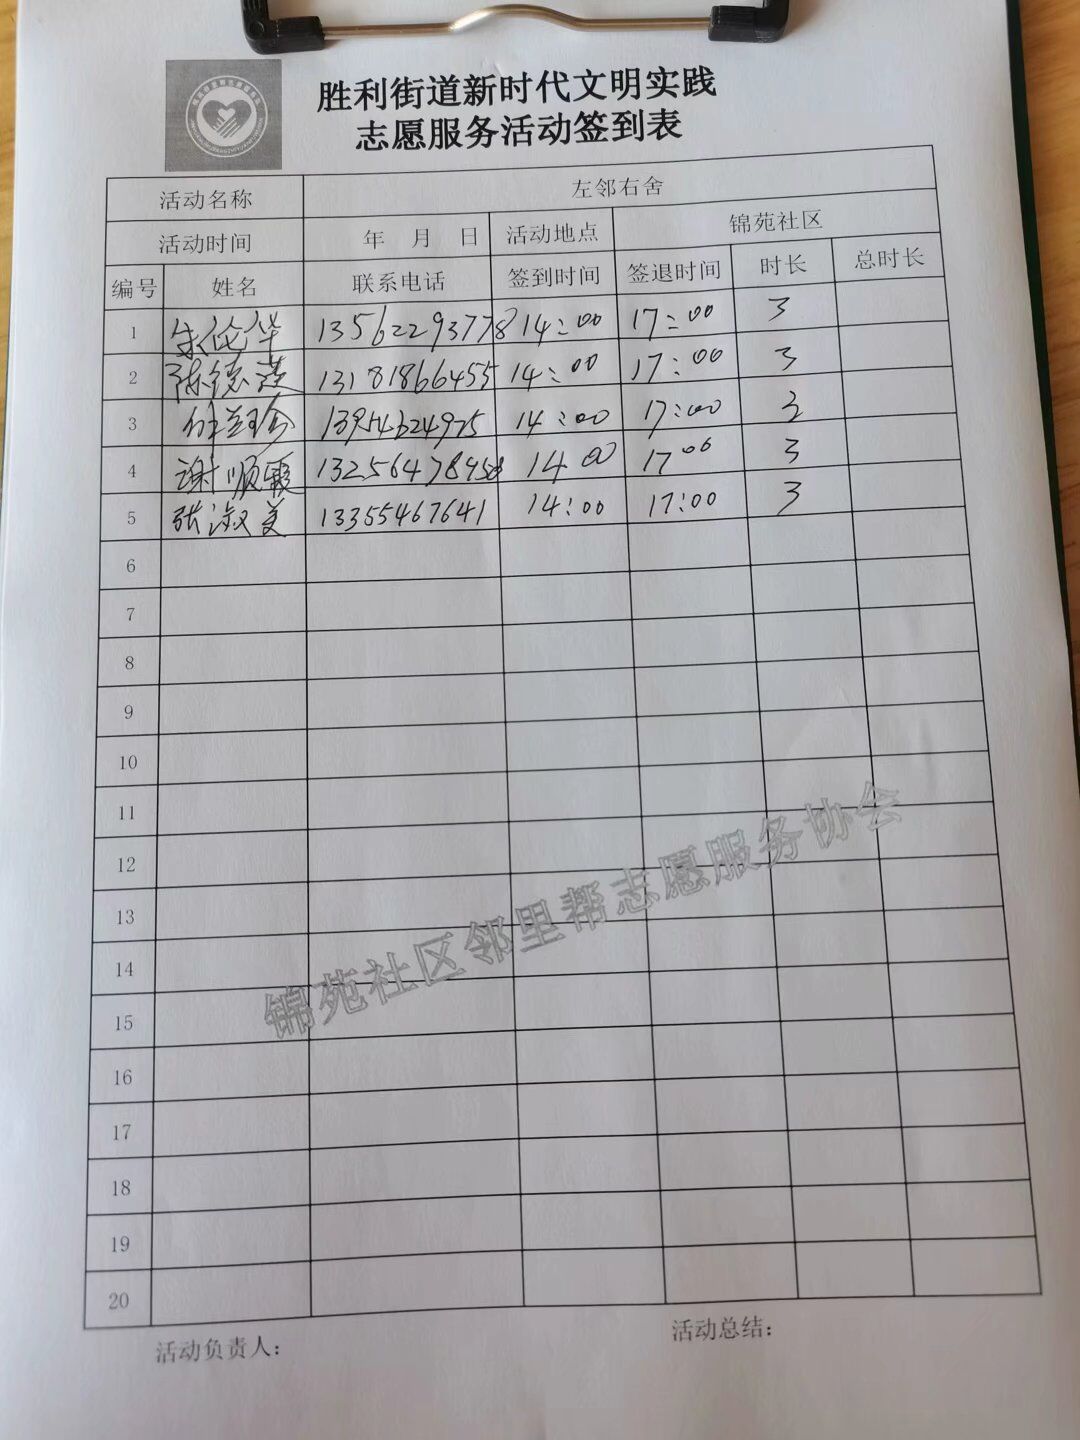 胜利街道新时代文明实践
志愿服务活动签到表
活动名称 左邻右舍
活动时间 年 月 日 活动地点 锦苑社区
编号 姓名 联系电话 签到时间 签退时间 时长 总时长
1 朱伦华 13562293778 14:00 17:00 3
2 陈德 13181866455 14:00 17:00 3
3 13954624975 14:00 17:00 3
4 谢顺霞 13256478958 14 00 17 00 3
5 张淑美 13355467641 14:00 17:00 3
6
7
8
9
10
11
12
13
14
15
16
17
18
19
20
锦苑社区邻里帮志愿服务协会
活动负责人: 活动总结: